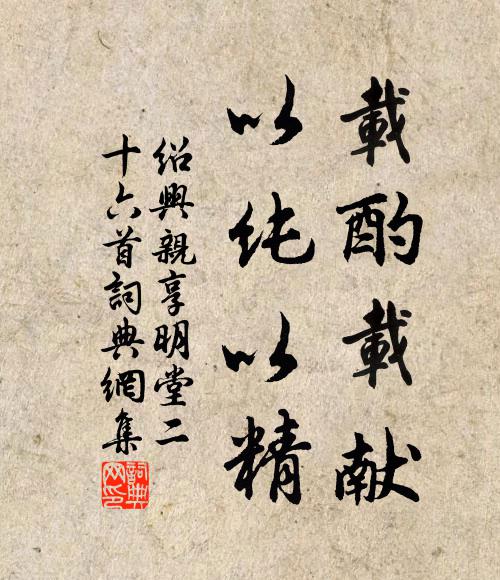 載酌載献
以純以精
绍興親享明堂二
十六首詞典網集
詞典
网印